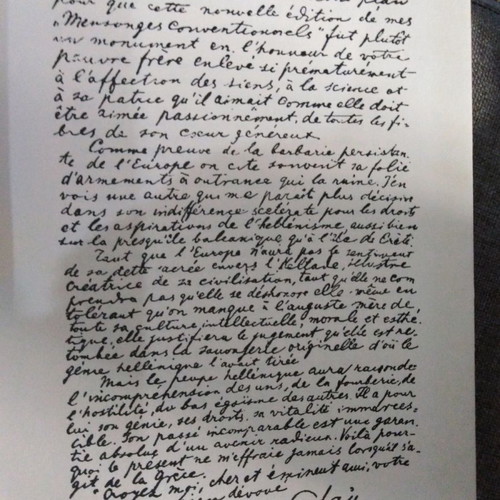 pour que cette nouvelle édition de mes
"Mensonges Conventionnels" fut plutôt
un monument en l'honneur de votre
pauvre frère enlevé si prématurément
à l'affection des siens, à la science et
à sa patrie qu'il aimait comme elle doit
être aimée passionnément, de toutes les fi-
bres de son cœur généreux.
Comme preuve de la berbarie persistan-
te de l'Europe on cite souvent sa folie
d'armements à outrance qui la ruine. J'en
vois une autre qui me paraît plus décisive
dans son indifférence scélérate pour les droits
et les aspirations de l'hellénisme, aussi bien
sur la presqu'île balcanique qu'à l'Île de Crète.
Tant que l'Europe n'aura pas le sentiment
de sa dette sacrée envers l'Hellade, illustre
créatrice de sa civilisation, tant qu'elle ne com
prendra pas qu'elle se déshonore elle-même en
tolérant qu'on manque à l'auguste mère de
toute sa culture, intellectuelle, morale et esthé-
tique, elle justifiera le jugement qu'elle est re-
tombée dans la sauvagerie originelle d'où le
génie hellénique l'avait tirée
Mais le peuple hellénique aura raison de
l'incompréhension des uns, de la fourberie, de
l'hostilité, du bas égoïsme des autres. Il a pour
lui son génie, ses droits, sa vitalité immarces-
cible. Son passé incomparable est une garan-
tie absolue d'un avenir radieux. Voilà pour-
quoi le présent ne m'effraie jamais lorsqu'il s'a-
git de la Grèce.
Croyez moi, cher et éminent ami, votre
dévoué